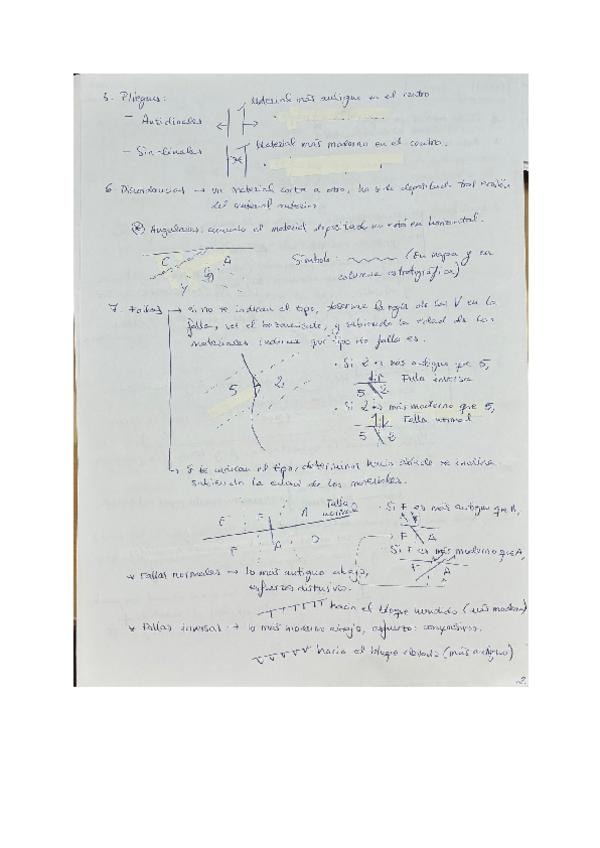 5. Pliegues:
Material más antiguo en el centro
- Anticlinales
- Sinclinales Material más moderno en el centro.
6. Discordancias → un material corta a otro, ha sido depositado tras erosión
del material anterior.
* Angulares: cuando el material depositado no está en horizontal.
C A
Símbolo: (En mapa y en
columna estratigráfica)
7. Fallas → si no se indican el tipo, la regla de las V en la
falla, ver el buzamiento, y sabiendo la edad de los
materiales indicar que tipo de falla es.
5 2
• Si 2 es más antiguo que 5,
Falla inversa
5 2
• Si 2 es más moderno que 5,
Falla normal
5 2
→ Si te indican el tipo, determinar hacia dónde se inclina
sabiendo la edad de los materiales.
Falla normal
F A
• Si F es más antiguo que A,
F A
Si F es más moderno que A,
F A
* Fallas normales → lo más antiguo abajo,
esfuerzo distensivo.
hacia el bloque hundido (más moderno)
* Fallas inversas → lo más moderno abajo, esfuerzo compresivo.
hacia el bloque elevado (más antiguo)
2.